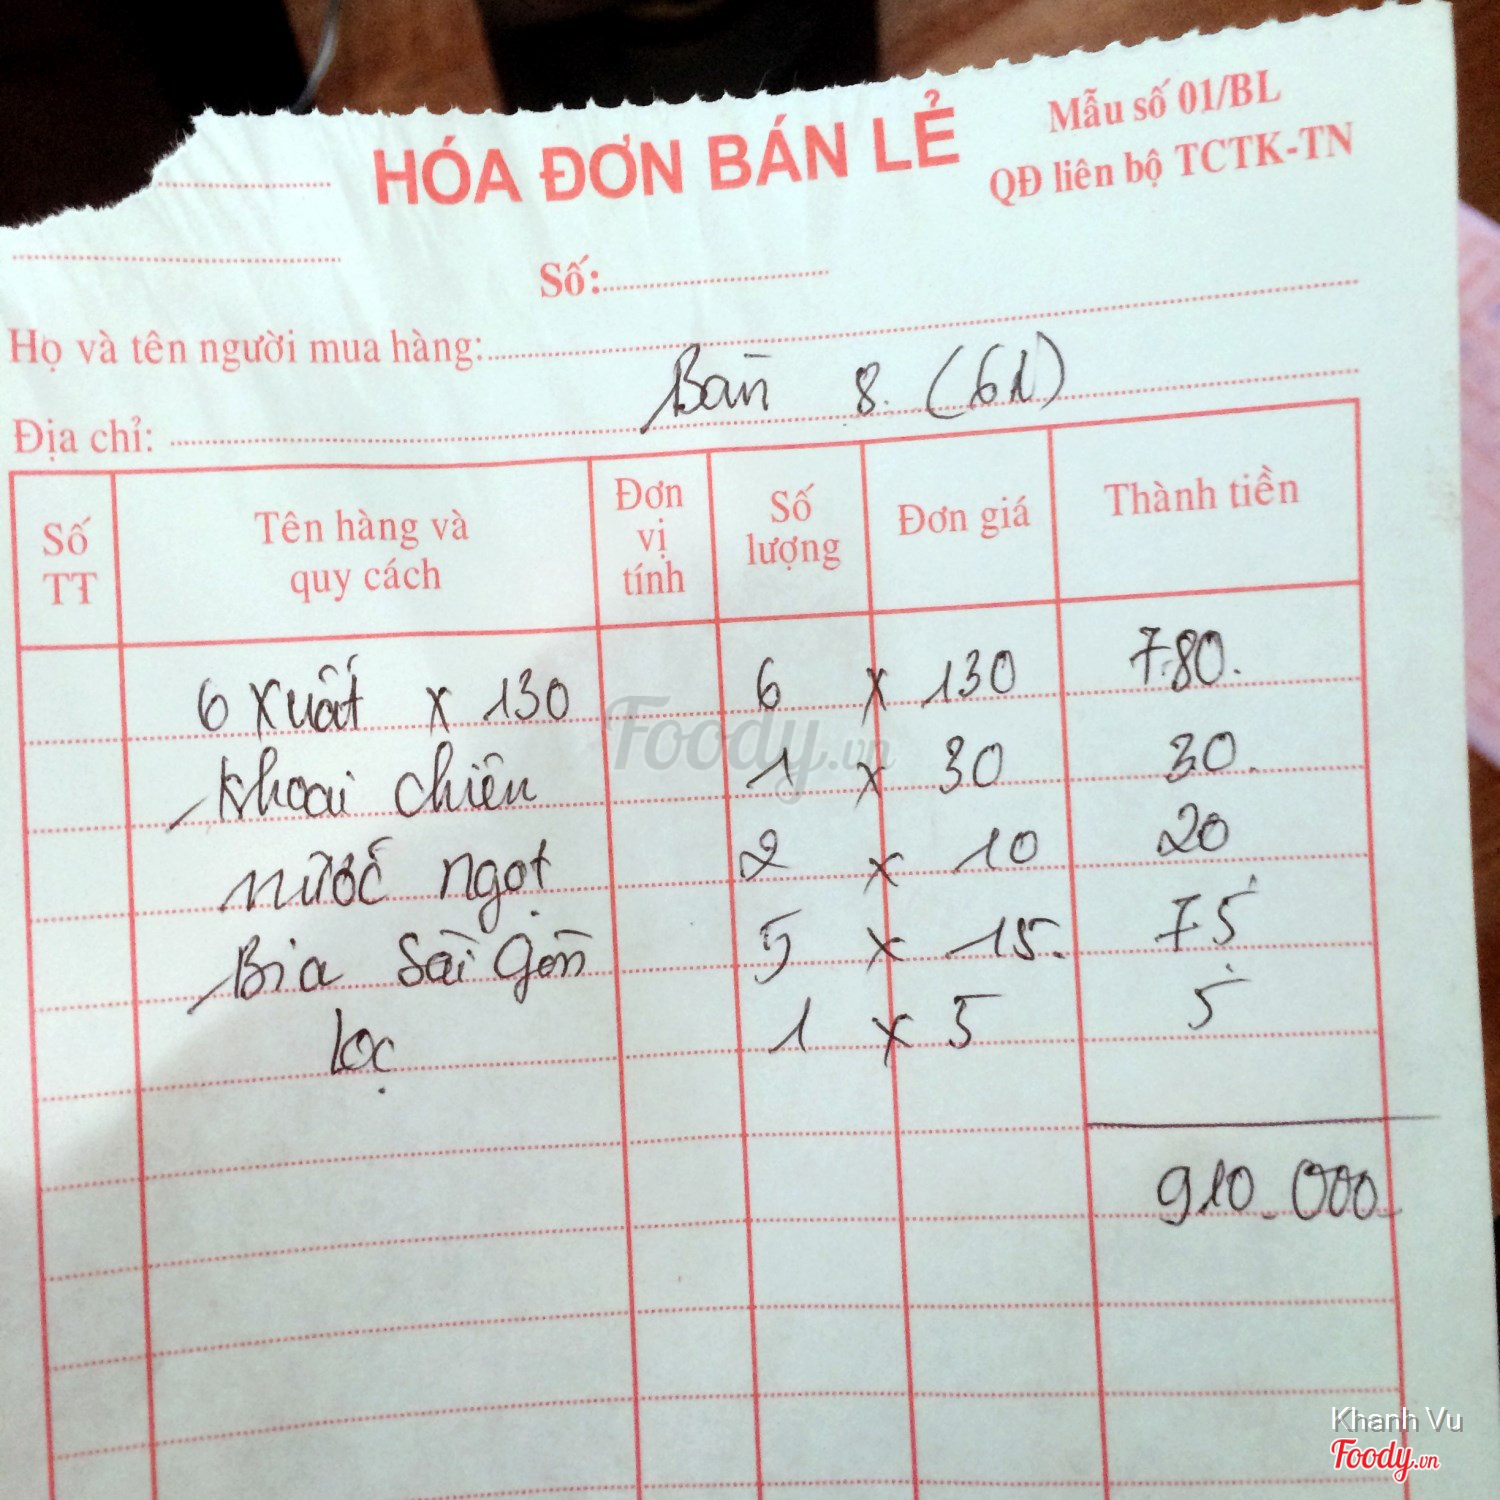 HÓA ĐƠN BÁN LẺ
Mẫu số 01/BL
QĐ liên bộ TCTK-TN
Số:
Họ và tên người mua hàng:
Bàn 8. (61)
Địa chỉ:
Số TT Tên hàng và quy cách Đơn vị tính Số lượng Đơn giá Thành tiền
6 xuất x 130 6 x 130 780.
Khoai chiên 1 x 30 30.
nước ngọt 2 x 10 20
Bia Sài Gòn 5 x 15. 75
Lọc 1 x 5 5
910.000
Foody.vn
Khanh Vu
Foody.vn